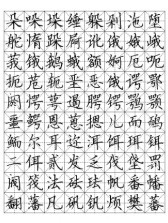 朵 哚 垛 垛 躲 剁 沲 堕
舵 惰 跺 屙 讹 俄 娥 峨
莪 锇 鹅 蛾 额 婀 厄 呃
扼 苊 轭 垩 恶 饿 谔 鄂
阏 愕 萼 遏 腭 锷 鹗 颚
噩 鳄 恩 蒽 摁 儿 而 鸸
鲕 尔 耳 迩 洱 饵 珥 铒
二 佴 贰 发 乏 伐 垡 罚
阀 筏 法 砝 珐 帆 番 幡
翻 藩 凡 矾 钒 烦 樊 蕃